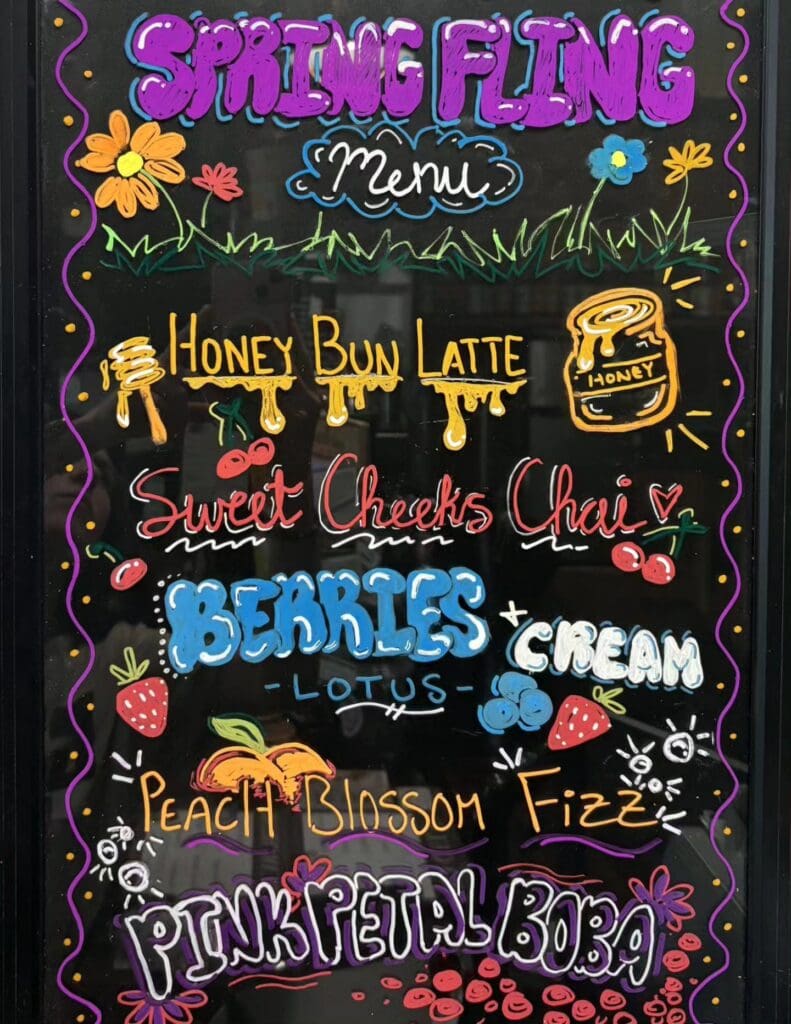 SPRING FLING
Menu
HONEY BUN LATTE
HONEY
Sweet Cheeks Chai
BERRIES
+ CREAM
- LOTUS -
PEACH BLOSSOM FIZZ
PINK PETAL BOBA